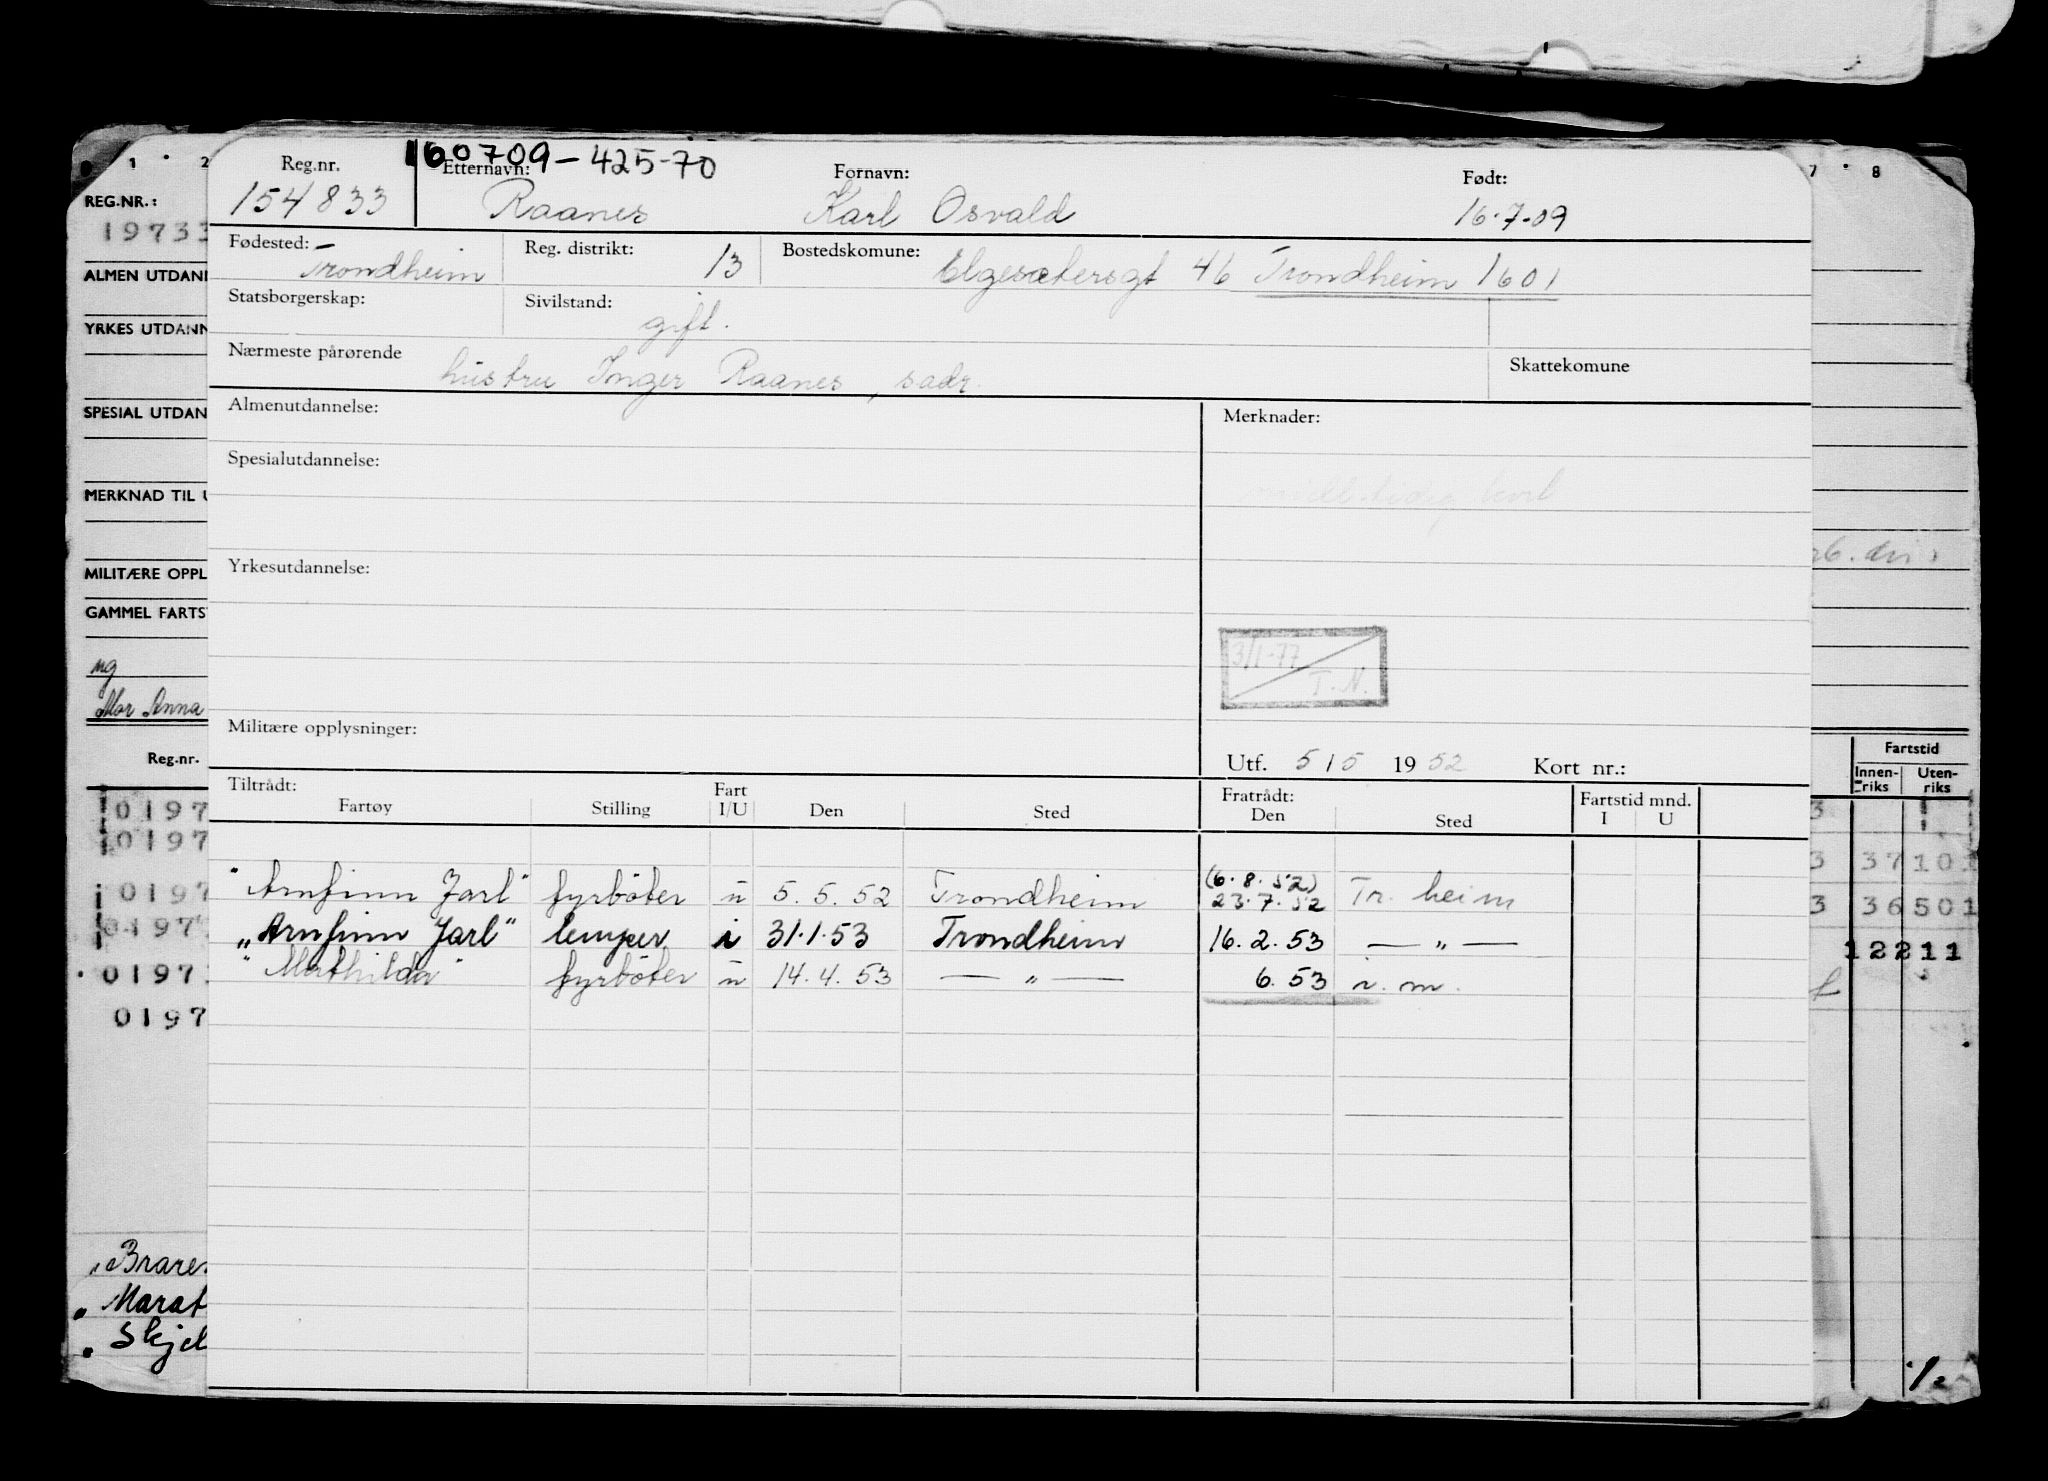 1 2
REG.NR.:
19733
ALMEN UTDANN
YRKES UTDANN
SPESIAL UTDAN
MERKNAD TIL U
MILITÆRE OPPL
GAMMEL FARTS
ug
Mor Anna
Reg.nr.
0197
0197
0197
0197
0197
0197
Marat
Skjel
160709-425-70
Reg.nr. Etternavn: Fornavn: Født:
154833 Raanes Karl Osvald 16.7.09
Fødested: Trondheim Reg. distrikt: 13 Bostedskomune: Elgesætersgt 46 Trondheim 1601
Statsborgerskap: Sivilstand: gift.
Nærmeste pårørende hustru Inger Raanes, sadr. Skattekomune
Almenutdannelse: Merknader:
Spesialutdannelse:
Yrkesutdannelse:
3/1-77
T.N.
Militære opplysninger:
Utf. 5/5 1952 Kort nr.:
Tiltrådt: Fratrådt: Fartstid mnd.
Fartøy Stilling Fart I/U Den Sted Den Sted I U
"Arnfinn Jarl" fyrbøter u 5.5.52 Trondheim (6.8.52) 23.7.52 Tr.heim
"Arnfinn Jarl" lemper i 31.1.53 Trondheim 16.2.53 — " —
"Mathilda" fyrbøter u 14.4.53 — " — 6.53 i.m.
7 8
Fartstid
Innen-riks Uten-riks
3
3 37 101
3 36 501
12211